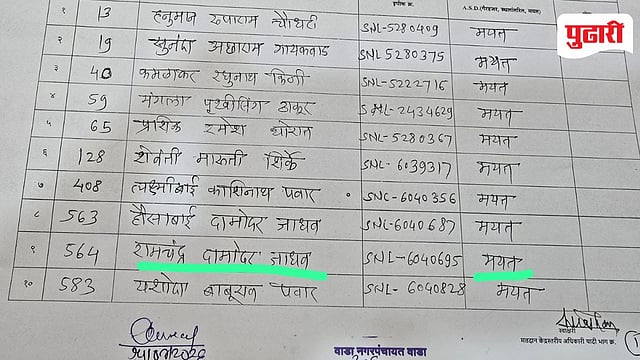 क्र. A.S.D. (गैरहजर, स्थलांतरित, मयत)
पुढारी
१ 13 हनुमान रुपाराम चौधरी SNL-5280409 मयत
२ 19 सुनंदा अछाराम गायकवाड SNL5280375 मयत
३ 40 कमळाकर रघुनाथ किणी SNL-5222716 मयत
४ 59 मंगला पृथ्वीसिंग ठाकुर SNL-2434629 मयत
५ 65 प्राशिक रमेश थोरात SNL-5280367 मयत
६ 128 शेवंती मारुती शिर्के SNL-6039317 मयत
७ 408 लक्ष्मीबाई काशिनाथ पवार SNL-6040356 मयत
८ 563 हौसाबाई दामोदर जाधव SNL-6040687 मयत
९ 564 रामचंद्र दामोदर जाधव SNL-6040695 मयत
१० 583 यशोदा बाबुराव पवार SNL-6040828 मयत
स्वाक्षरी
मतदान केंद्रस्तरीय अधिकारी यादी भाग क्र.
वाडा नगरपंचायत वाडा